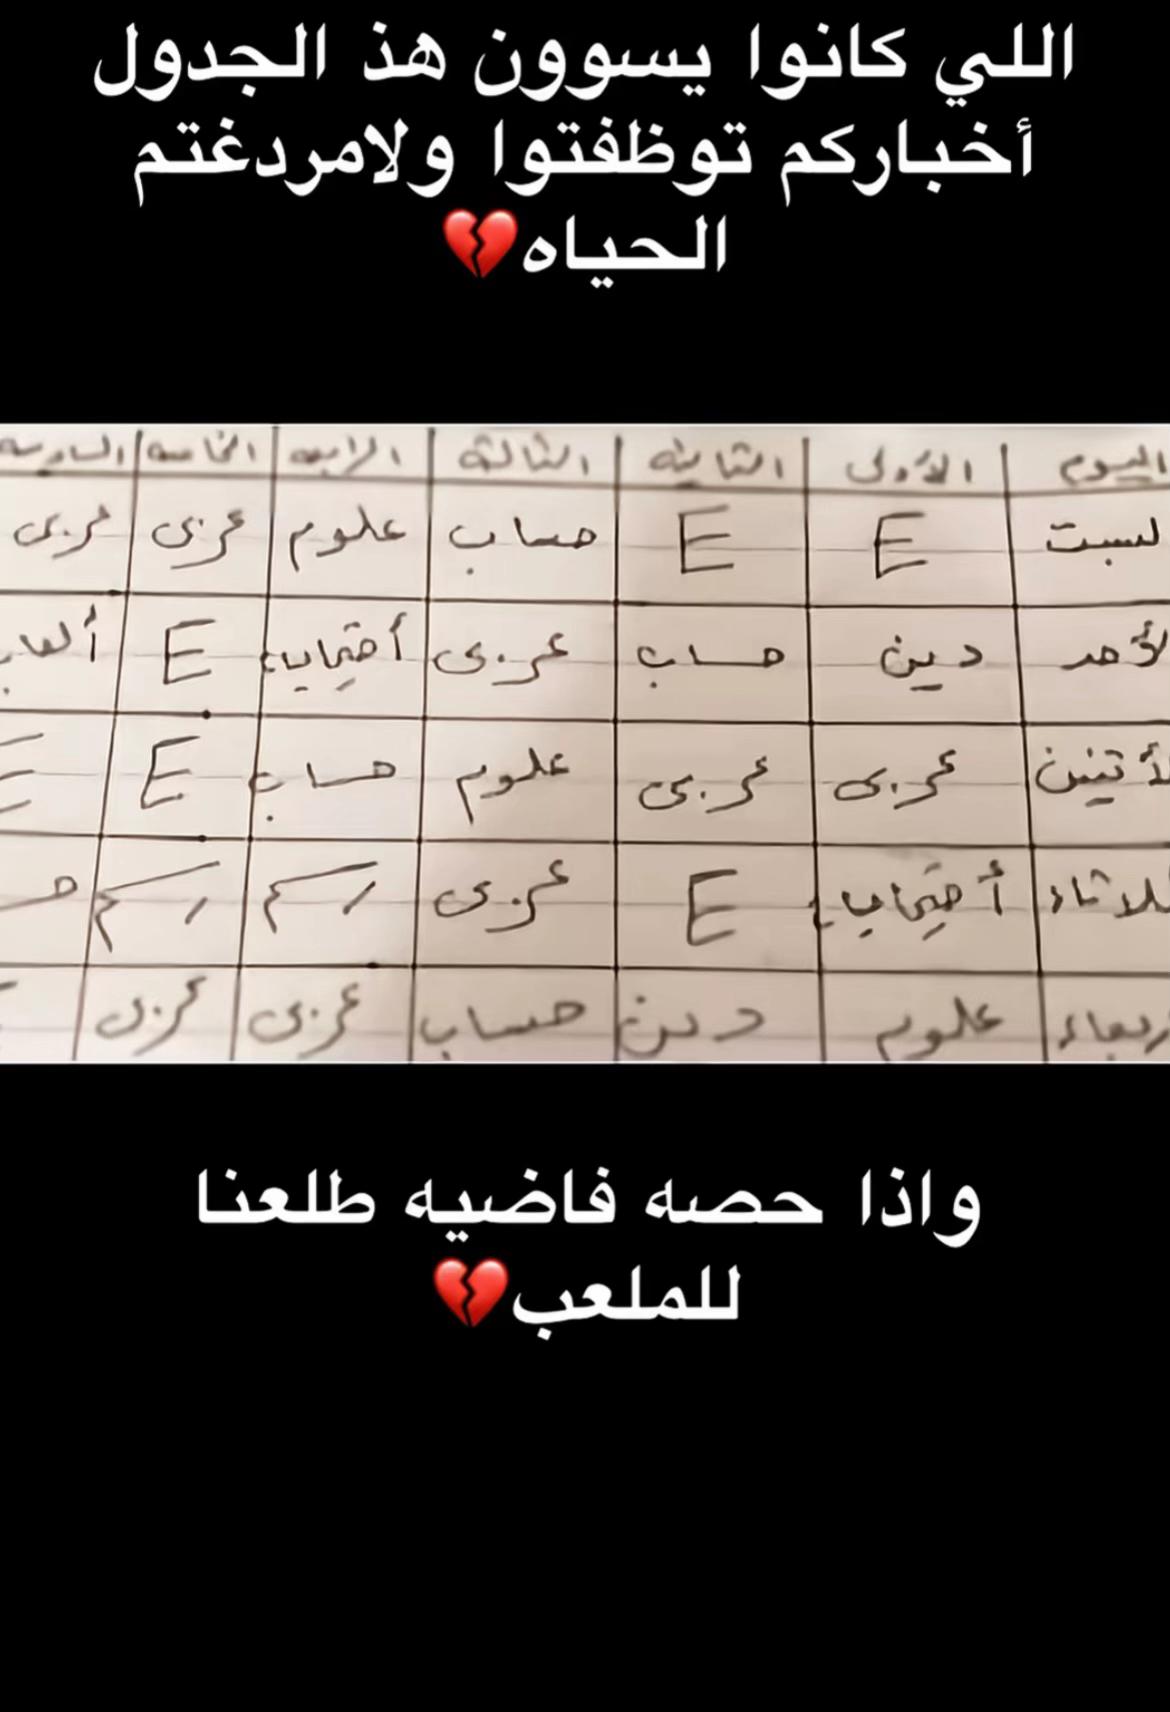 اللي كانوا يسوون هذ الجدول
أخباركم توظفتوا ولامردغتم
الحياه💔
اليوم الأولى الثانية الثالثة الرابعه الخامسه السادسه
لسبت E E حساب علوم عربى عربى
لأحد دين حساب عربى E
لأتنين عربى عربى علوم حساب E E
ثلاثاء E عربى رسم رسم
ربعاء علوم دين حساب عربى عربى
واذا حصه فاضيه طلعنا
للملعب💔